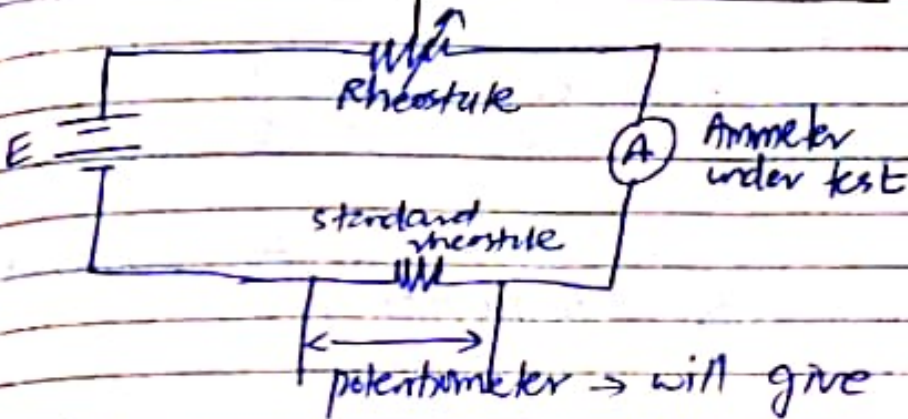 Rheostate
E
A
Ammeter
under test
standard
rheostate
potentiometer → will give